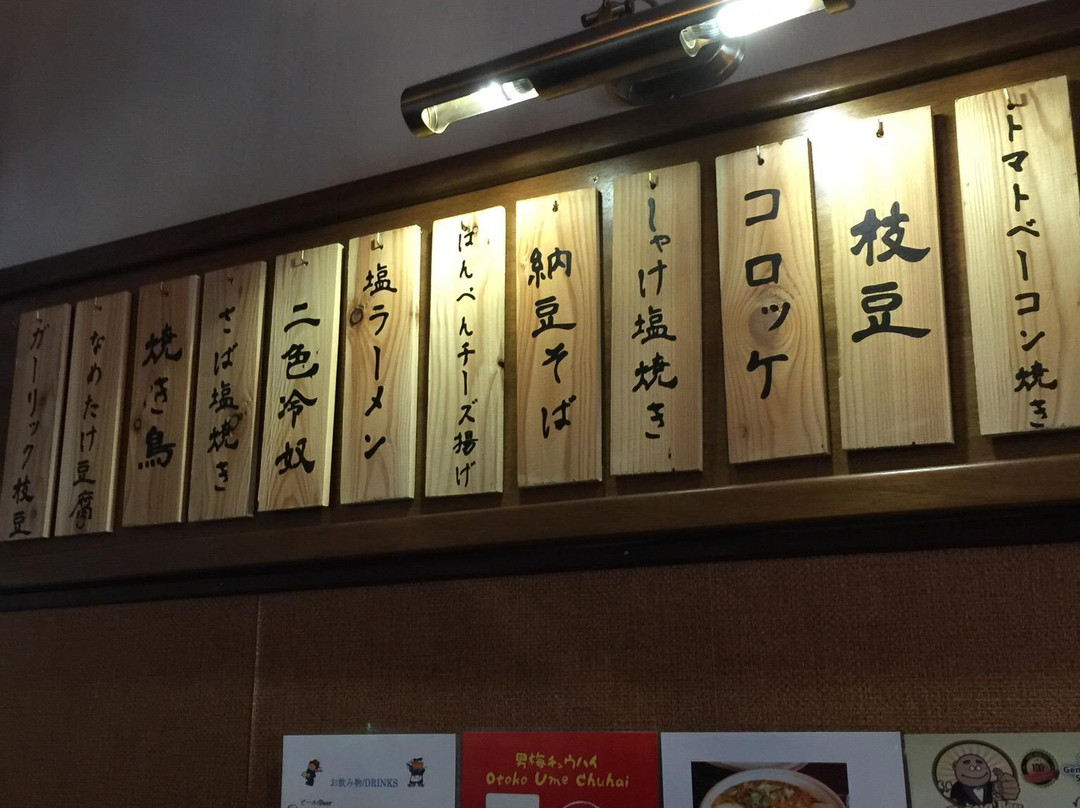 トマトベーコン焼き
枝豆
コロッケ
しゃけ塩焼き
納豆そば
はんぺんチーズ揚げ
塩ラーメン
二色冷奴
さば塩焼き
焼き鳥
なめたけ豆腐
ガーリック枝豆
お飲み物/DRINKS
ビール/Beer
男梅チュウハイ
Otoko Ume Chuhai
100